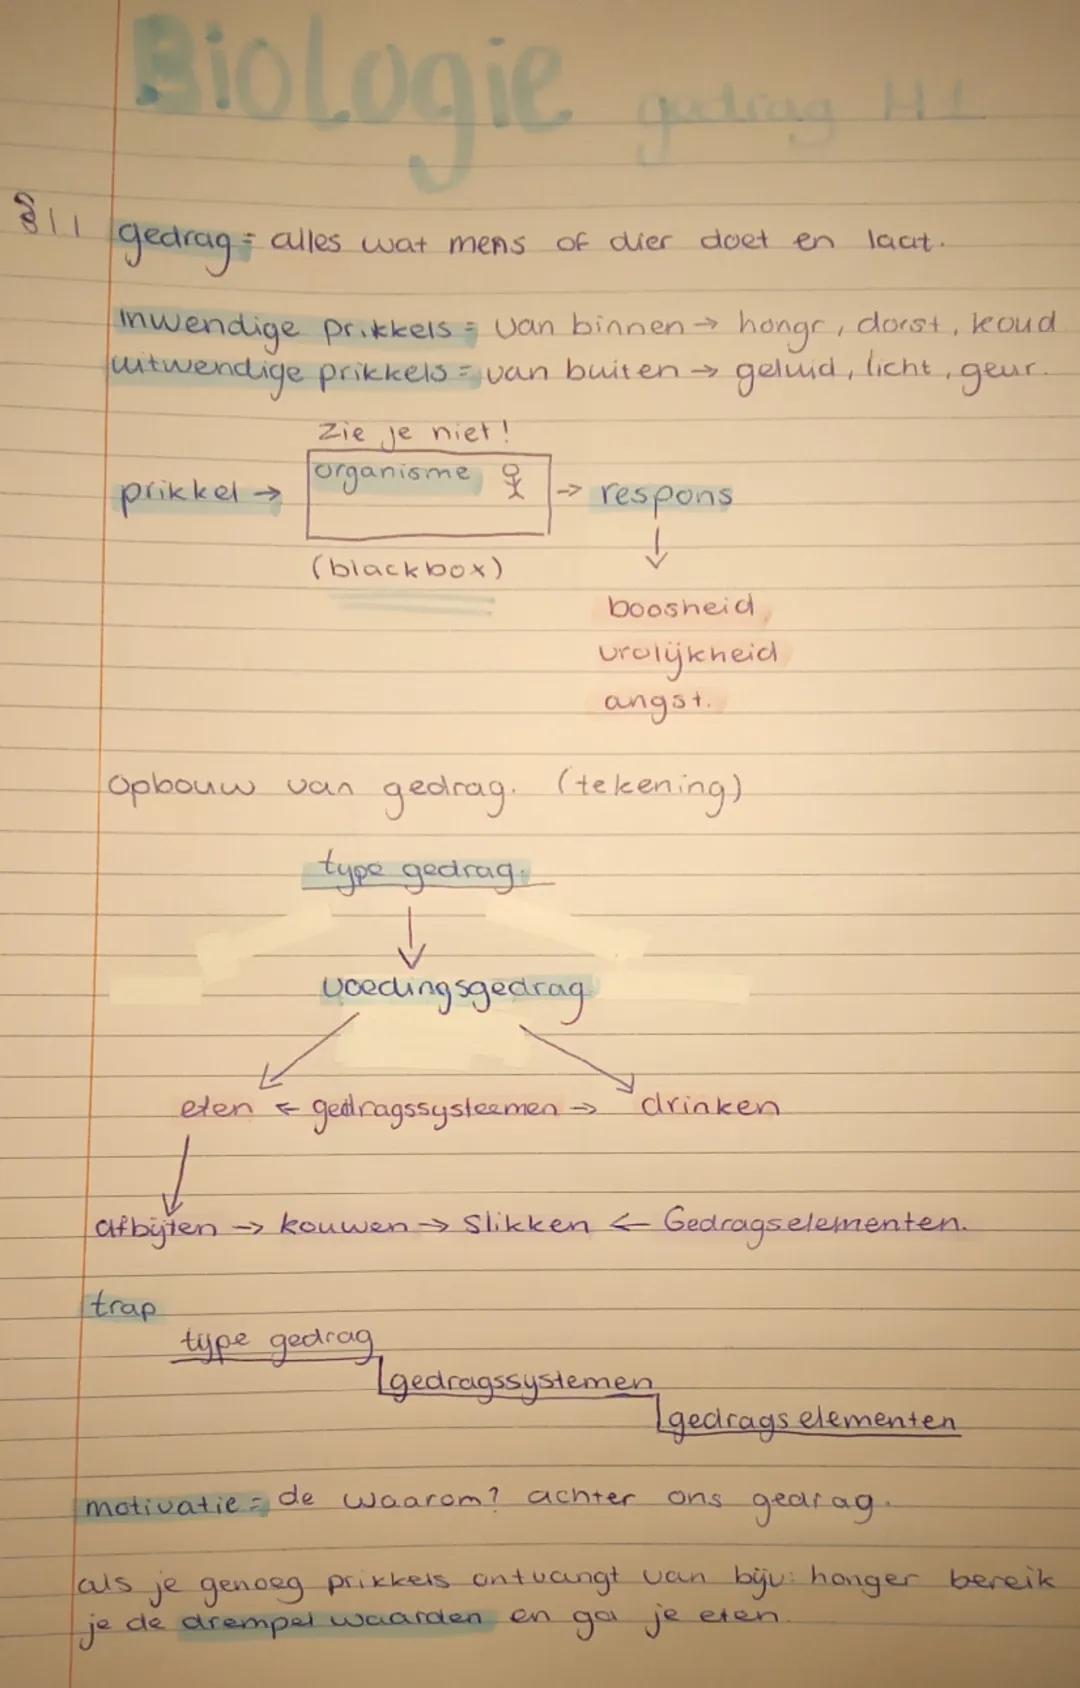 Biologie gedrag H1
§11 gedrag = alles wat mens of dier doet en laat.
inwendige prikkels = van binnen → hongr, dorst, koud
uitwendige prikkels = van buiten → geluid, licht, geur.
Zie je niet!
prikkel → organisme → respons
(blackbox)
↓
boosheid
vrolijkheid
angst.
Opbouw van gedrag. (tekening)
type gedrag.
↓
voedingsgedrag
eten ← gedragssysteemen → drinken
afbijten → kouwen → Slikken ← Gedragselementen.
trap
type gedrag
gedragssystemen
gedrags elementen
motivatie = de waarom? achter ons gedrag.
als je genoeg prikkels ontvangt van bijv: honger bereik
je de drempel waarden en ga je eten.